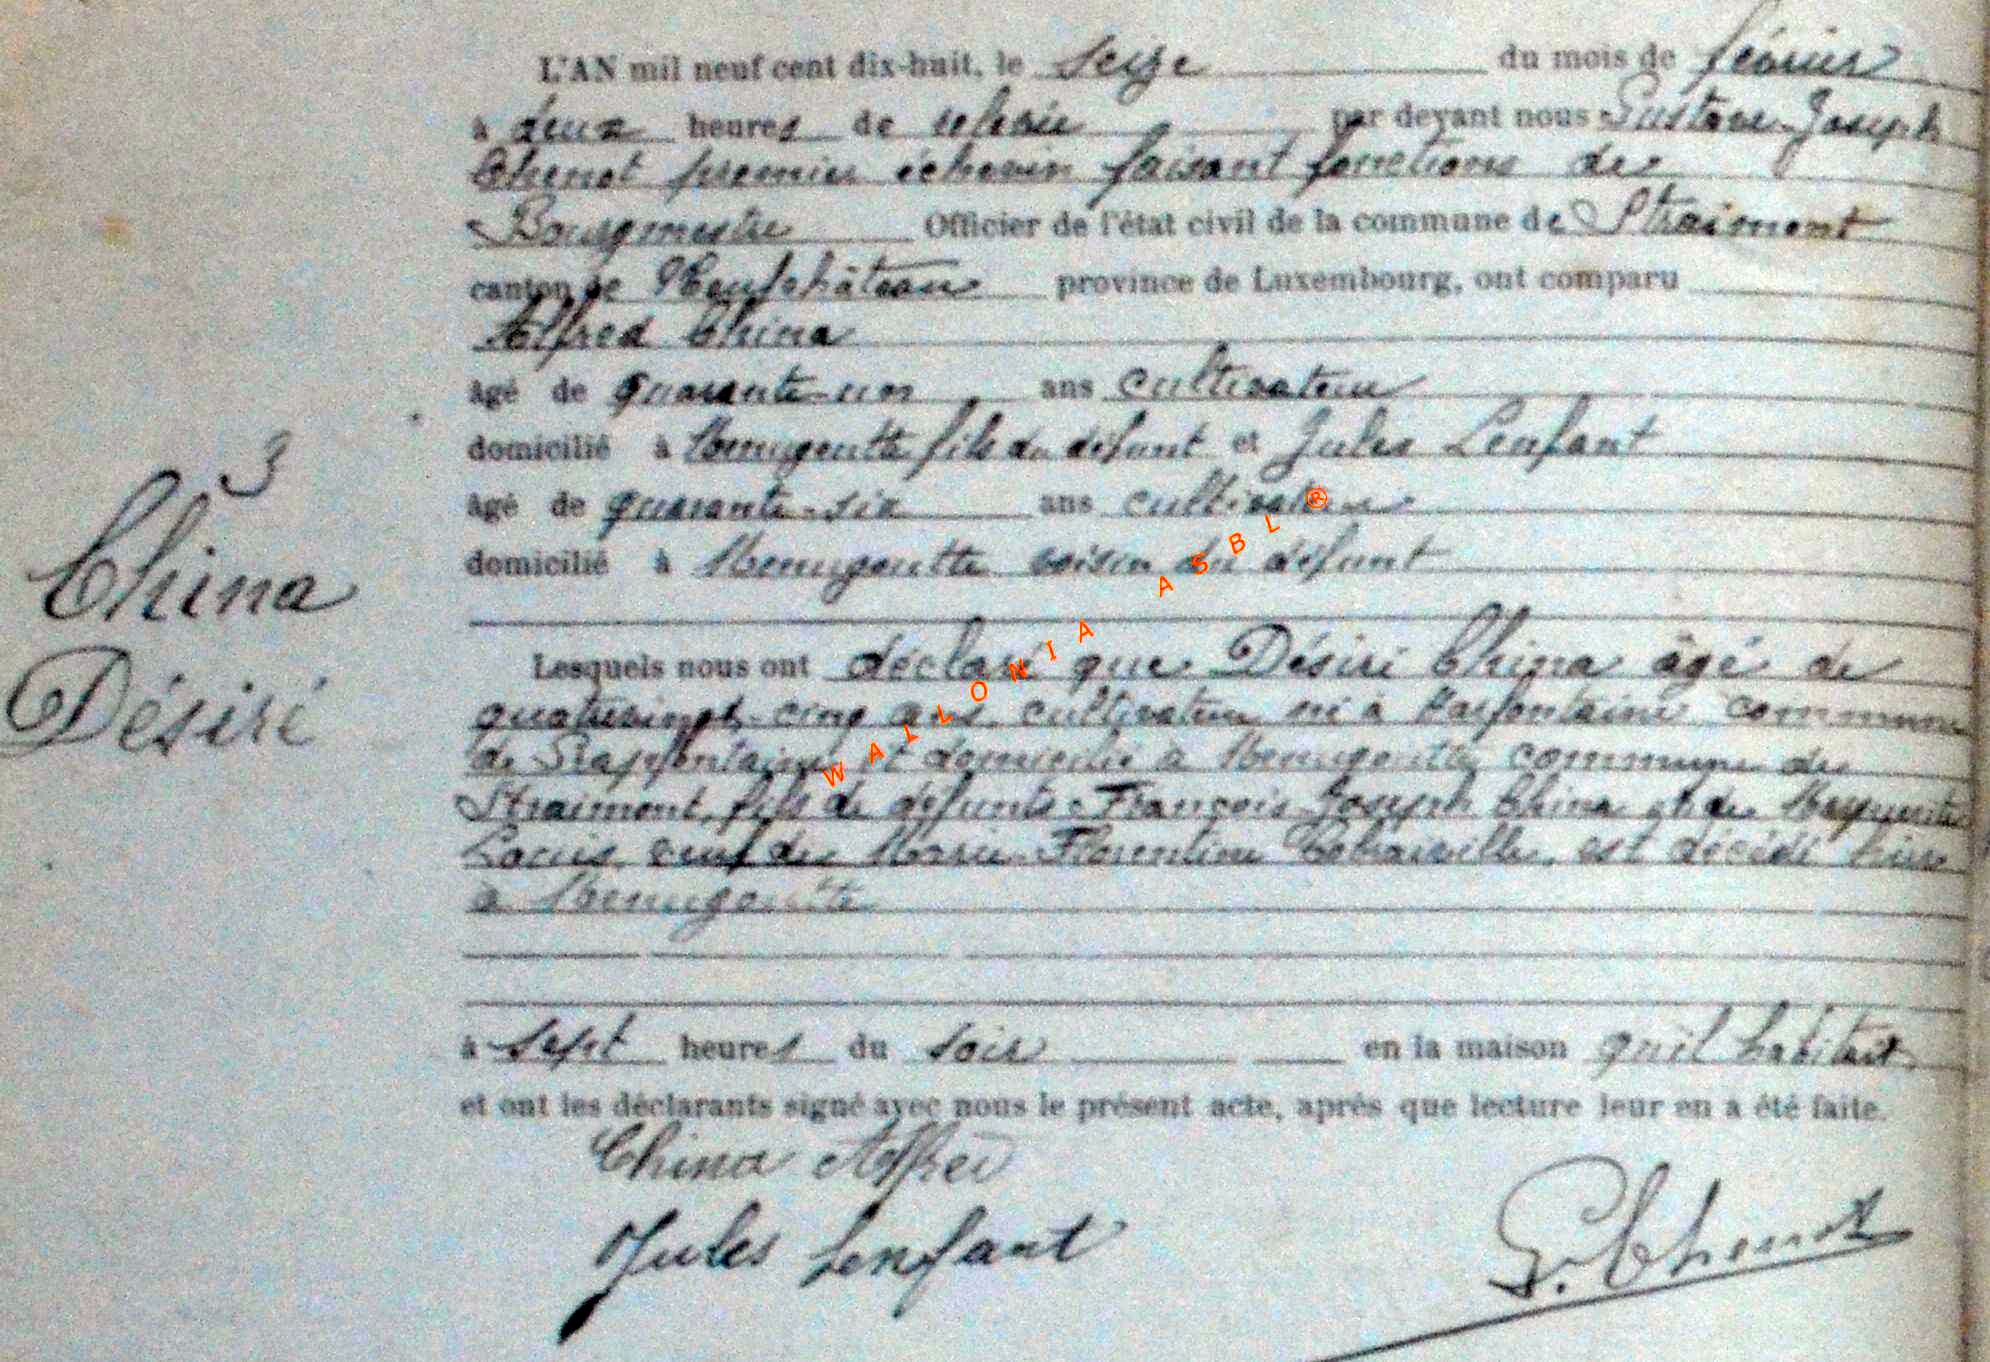 L'AN mil neuf cent dix-huit, le seize du mois de février
à deux heures de relevée par devant nous Gustave Joseph
Chenot premier échevin faisant fonctions de
Bourgmestre Officier de l'état civil de la commune de Straimont
canton de Neufchâteau province de Luxembourg, ont comparu
Alfred China
âgé de quarante-un ans cultivateur
domicilié à Menugoutte fils du défunt et Jules Lenfant
âgé de quarante-six ans cultivateur
domicilié à Menugoutte voisin du défunt
3
China
Désiré
Lesquels nous ont déclaré que Désiré China âgé de
quatrevingt-cinq ans, cultivateur né à commune
de et domicilié à Menugoutte commune de
Straimont, fils de défunts François Joseph China et de Marguerite
Louis veuf de Marie Florentine est décédé hier
à Menugoutte
à sept heures du soir en la maison qu'il habitait
et ont les déclarants signé avec nous le présent acte, après que lecture leur en a été faite.
China Alfred
Jules Lenfant
G. Chenot
WALLONIA ASBL ®